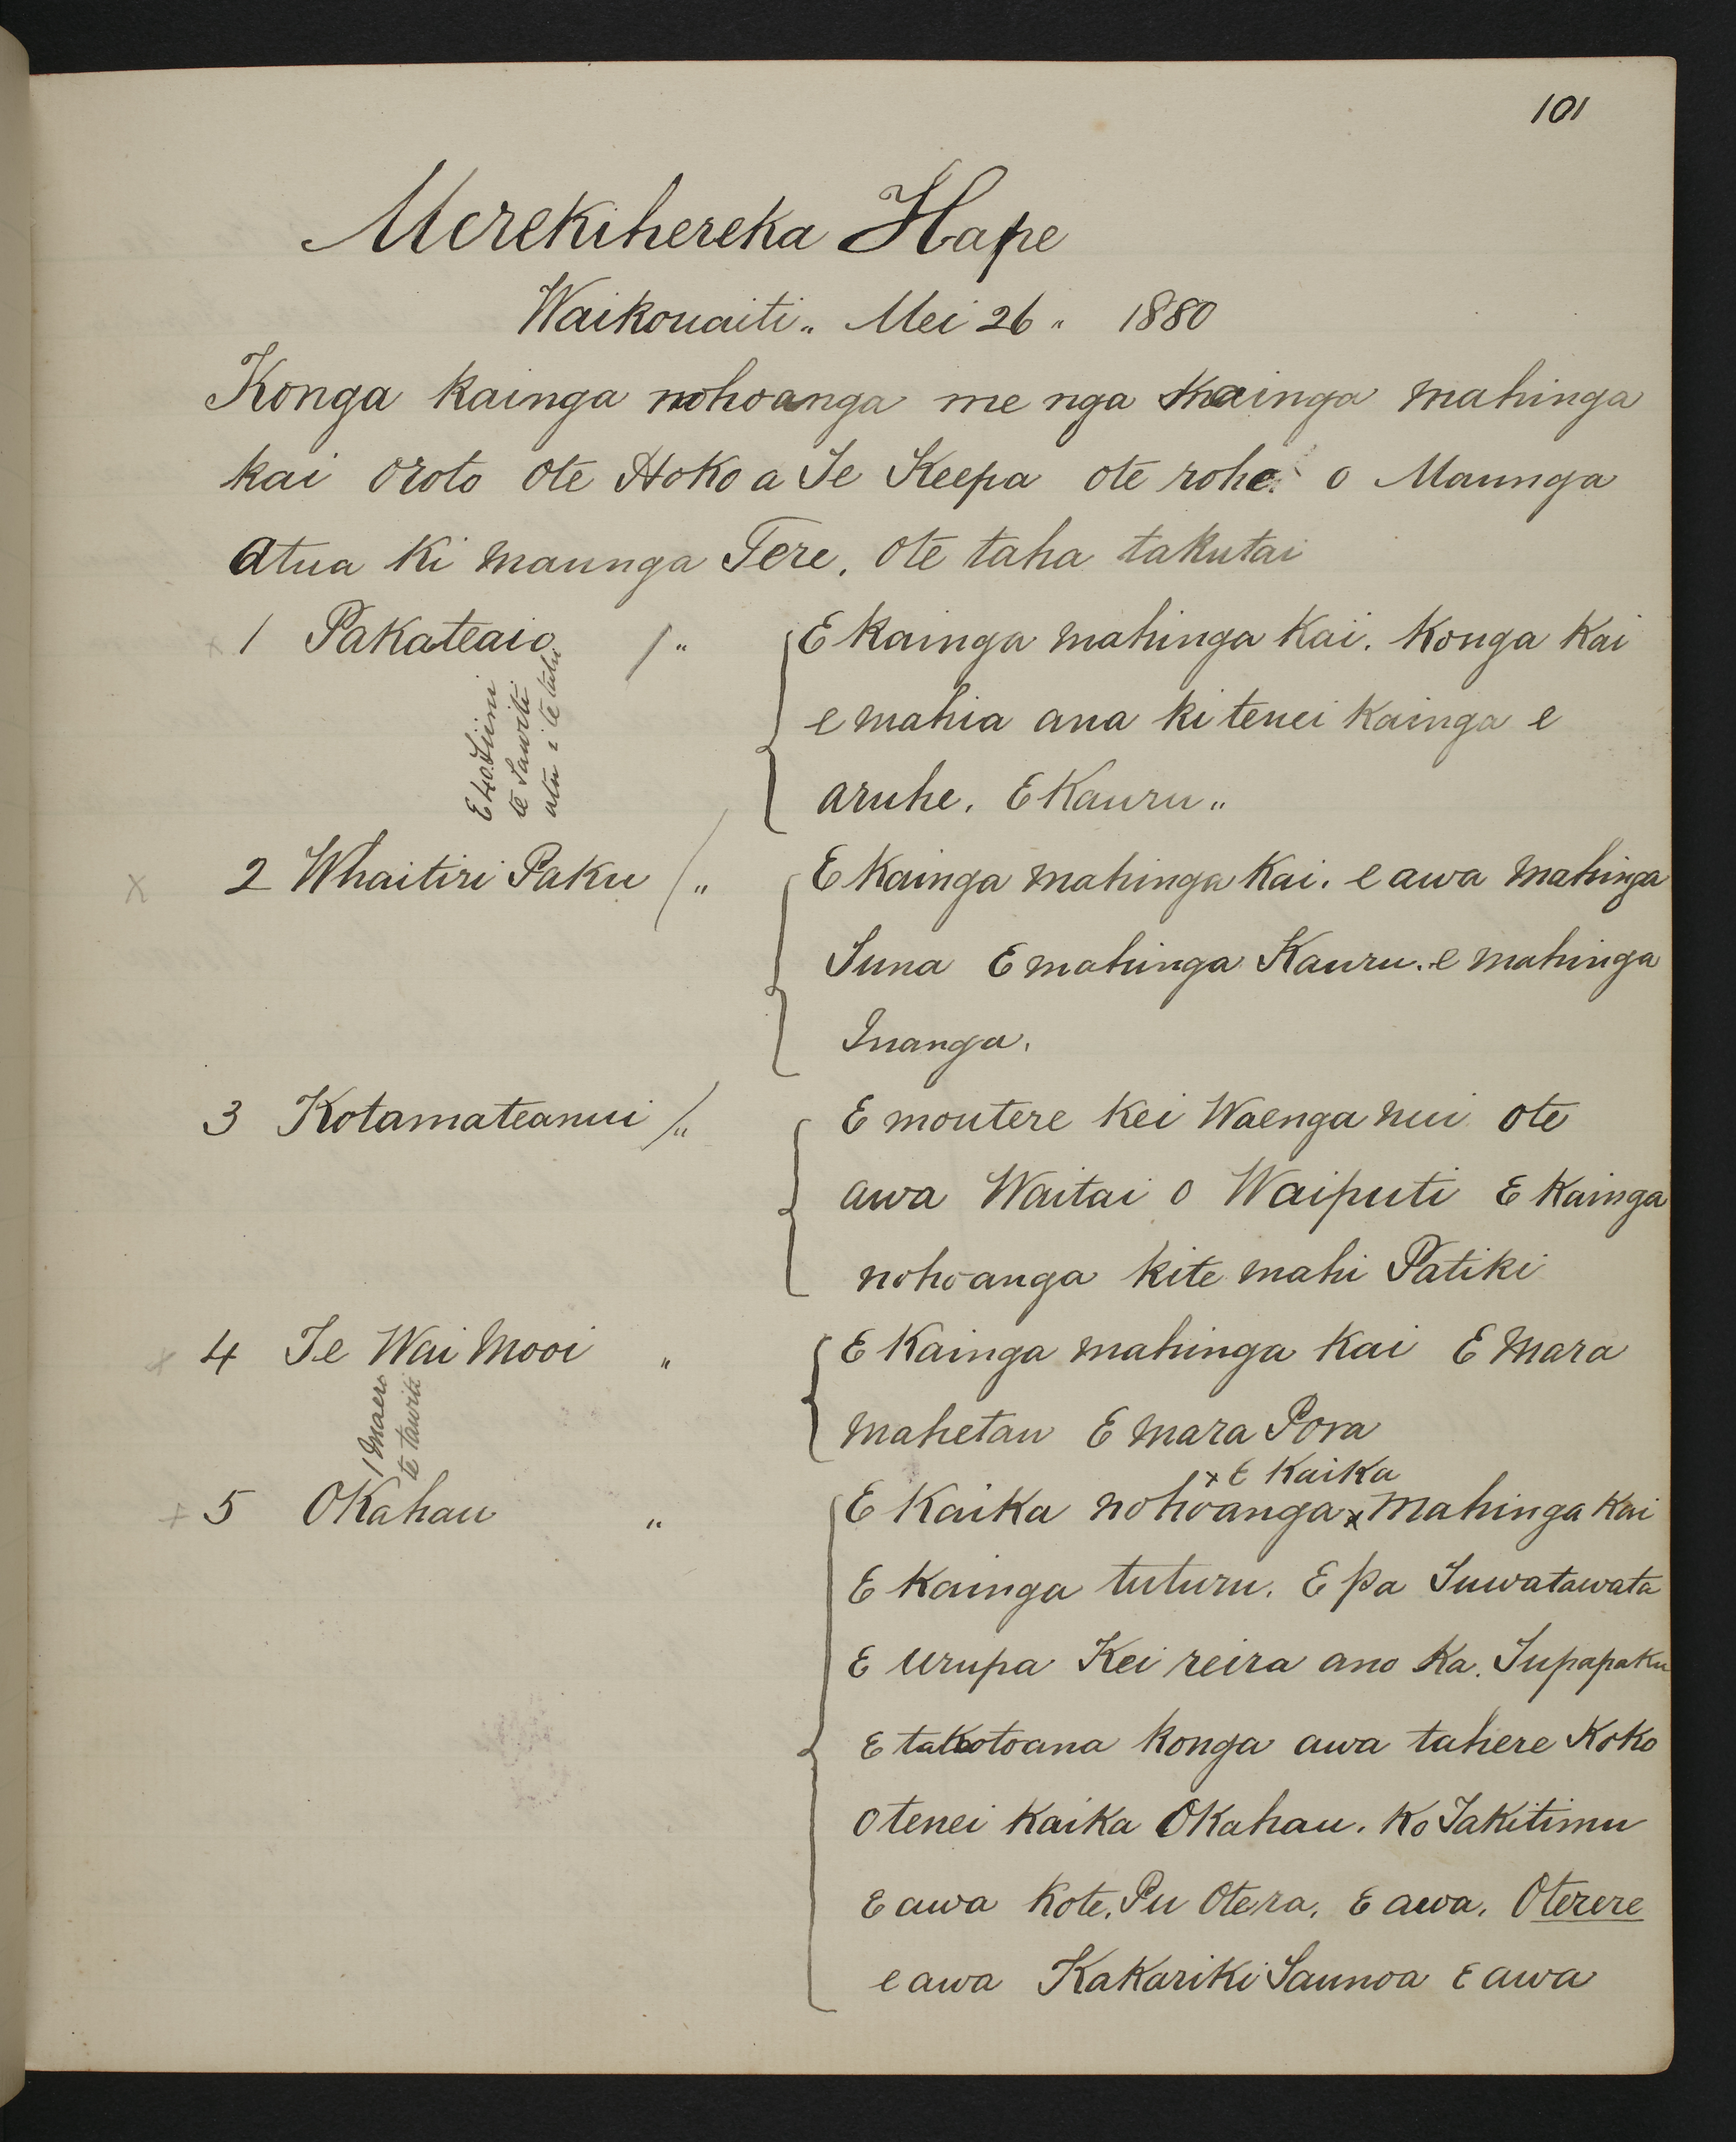 101
Merekihereka Hape
Waikouaiti „ Mei 26 „ 1880
Konga kainga nohoanga me nga kainga mahinga
kai oroto ote Hoko a Te Keepa ote rohe o Maunga
Atua ki maunga Tere. ote taha takutai
x 1 Pakateaio / „ E kainga mahinga kai. Konga kai
e mahia ana ki tenei kainga e
aruhe. E Kauru „
te Tawiti
atu i te tahi
x 2 Whaitiri Paku / „ E kainga mahinga kai. e awa mahinga
Tuna E mahinga Kauru. e mahinga
Inanga.
3 Kotamateanui / „ E moutere kei Waenga nui ote
awa Waitai o Waiputi E kainga
nohoanga kite mahi Patiki
x 4 Te Wai Mooi „ E Kainga mahinga kai E mara
mahetau E mara Pora
1 Maero
te tawiti
x E Kaika
x 5 OKahau „ E Kaika nohoanga x mahinga kai
E kainga tuturu. E pa Tuwatawata
E urupa Kei reira ano ka. Tupapaku
E takotoana konga awa tahere Koko
otenei kaika OKahau. Ko Takitimu
E awa Kote. Pu Otera. E awa. Oterere
e awa Kakariki Taunoa E awa